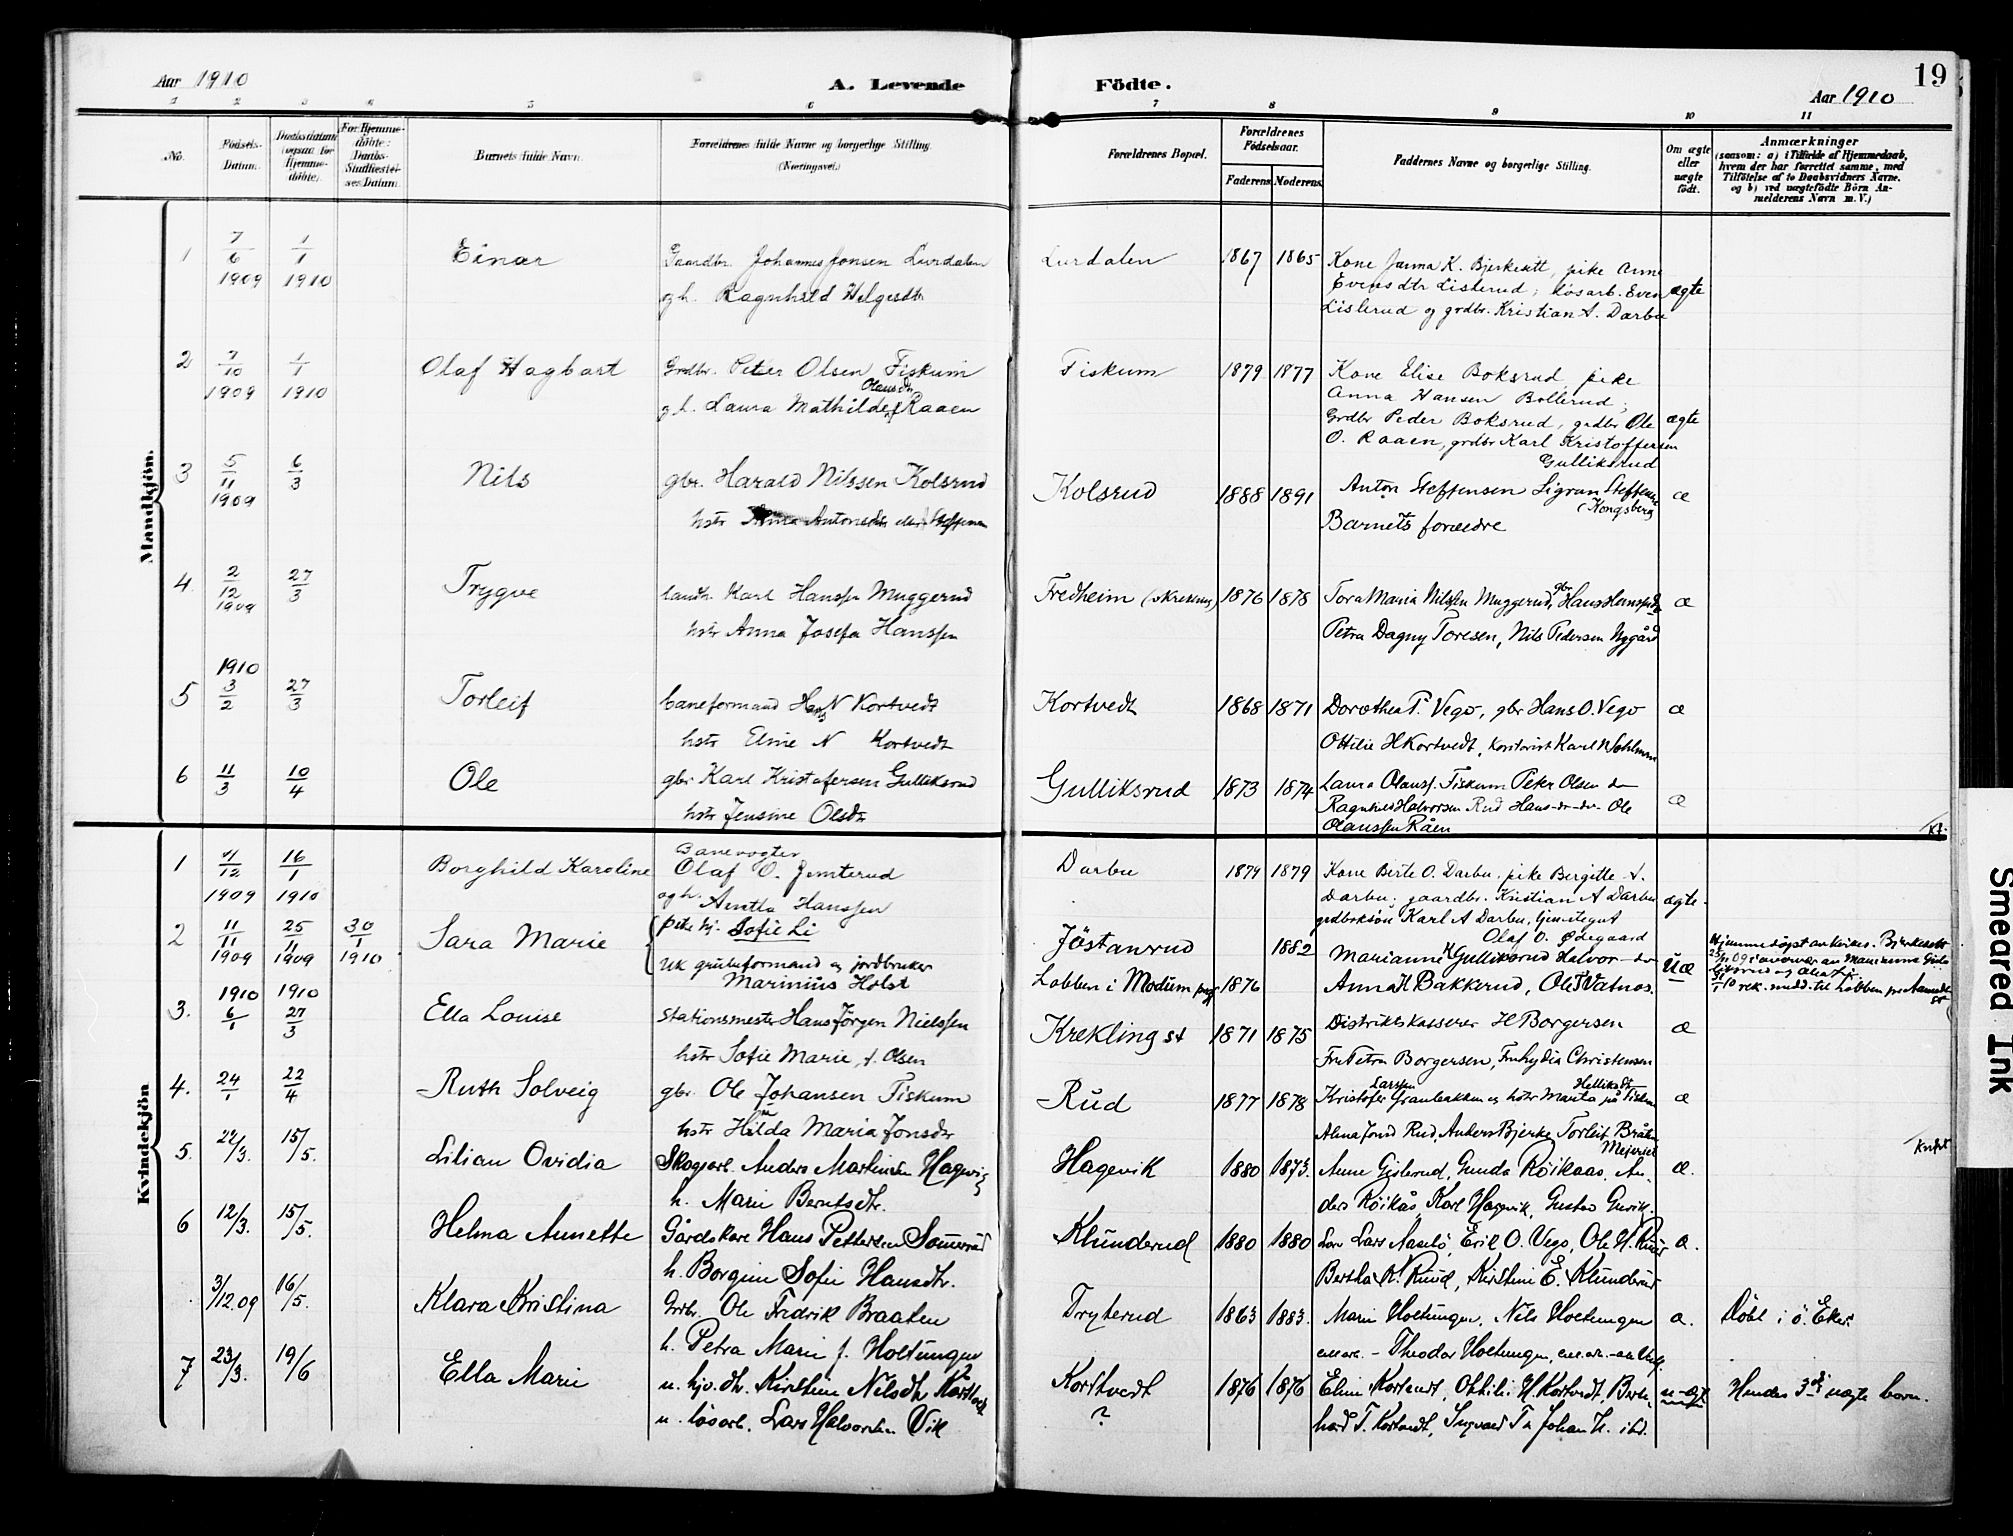 19
Aar 1910
A. Levende
Födte.
Aar 1910
1 2 3 4 5 6 7 8 9 10 11
No.
Födsels-
Datum.
Daabsdatum
(ogsaa for
Hjemme-
döbte).
For Hjemme-
döbte:
Daabs-
Stadfæstel-
ses Datum.
Barnets fulde Navn.
Forældrenes fulde Navne og borgerlige Stilling.
(Næringsvei.)
Forældrenes Bopæl.
Forældrenes
Födselsaar.
Faderens.
Moderens.
Faddernes Navne og borgerlige Stilling.
Om ægte
eller
uægte
födt.
Anmærkninger
(saasom: a) i Tilfælde af Hjemmedaab,
hvem der har forrettet samme, med
Tilföielse af to Daabsvidners Navne.
og b) ved uægtefödte Börn An-
melderens Navn m. V.)
Mandkjön.
1 7/6 1909 1/1 1910 Einar
Gaardbr. Johannes Jonsen Lurdalen
og h. Ragnhild Helgesdtr
Lurdalen 1867 1865
Kone Janna K. Bjerkesett, pike Anne
Evensdtr Lislerud; løsarb. Even
Lislerud og grdbr. Kristian A. Darbu
ægte
2 7/10 1909 1/1 1910 Olaf Hagbart
Grdbr. Peter Olsen Fiskum
og h. Laura Mathilde Olausdtr Raaen
Fiskum 1879 1877
Kone Elise Boksrud, pike
Anna Hansen Bollerud;
Grdbr Peder Boksrud, grdbr Ole
O. Raaen, grdbr Karl Kristoffersen
Gulliksrud
ægte
3 5/11 1909 6/3 Nils
gbr. Harald Nilssen Kolsrud
hstr Anna Antonsdtr Steffensen
Kolsrud 1888 1891
Anton Steffensen Sigrun Steffensen
(Kongsberg)
Barnets foreldre
æ
4 2/12 1909 27/3 Trygve
landh. Karl Hanssen Muggerud
hstr Anna Josefa Hanssen
Fredheim (Krekling) 1876 1878
Tora Maria Nilssen Muggerud, gbr Hans Hanssen
Petra Dagny Toresen, Nils Pedersen Nygård
æ
5 1910 3/2 27/3 Torleif
baneformand Hans N Kortvedt
hstr Eline N Kortvedt
Kortvedt 1868 1871
Dorothea T. Vego, gbr Hans O. Vego
Ottilie H Kortvedt, Karl N
æ
6 11/3 10/4 Ole
gbr. Karl Kristofersen Gulliksrud
hstr Jensine Olsdtr
Gulliksrud 1873 1874
Laura Olausd. Fiskum Peter Olsen do
Ragnhild Halvorsen Rud Hans do do Ole
Olaussen Råen
æ
Kvindekjön
1 7/12 1909 16/1 1910 Borghild Karoline
Banevogter
Olaf O. Jemterud
og h. Hanssen
Darbu 1879 1879
Kone Birte O. Darbu, pike Bergitte A.
Darbu; gaardbr. Kristian A Darbu
grdbrksøn Karl A Darbu,
Olaf O. Ødegaard
ægte
2 11/11 1909 25/11 1909 30/1 1910 Sara Marie
Pike hj. Sofie Li
UK grubeformand og jordbruker
Marinius Holst
Jöstanrud
Løbben i Modum 1882 1876
Marianne H Gulliksrud Halvor do
Anna H Bakkerud, Ole T Vatnås.
Uæ
3. 1910 6/1 1910 27/3 Ella Louise
Stationsmester Hans Jörgen Nielssen
hstr Sofie Marie, f. Olsen
Krekling st 1871 1875
Distriktskasserer H Borgersen
Fru Petra Borgersen, Fru Lydia Christensen
æ
4. 24/1 22/4 Ruth Solveig
gbr. Ole Johansen Fiskum
hstr Hilda Maria Jonsdtr
Rud 1877 1878
Kristofer Larssen Granbakken og hstr Marta på Fiskum
Alma Jonsd Rud, Anders Bjerke, Torleif Bråten
Meieriet
æ
5. 22/3. 15/5. Lilian Ovidia
Skogsarb. Anders Martinsen Hagevik
h. Marie Berntsdtr.
Hagevik 1880 1873.
Anne Gislerud, Gunda Röikaas, An-
ders Röikås, Karl Hagevik, Gustav
æ.
6 12/3. 15/5. Helma Annette
Gårdskar Hans Pettersen
h. Borgine Sofie Hansdtr.
Klunderud 1880 1880
Lars Aaselö, Erik O. Vego, Ole H.
Bertha K. Ruud, Kirstine E. Klunderud
æ.
3/12.09 16/5. Klara Kristina
Grbr. Ole Fredrik Braaten
h. Petra Marie f. Holtungen
Tryterud 1863 1883.
Marie Holtungen, Nils Holtungen
Theodor Holtungen,
æ.
Döbt i ö. Eker
7 23/3. 19/6 Ella Marie
u. hjv. dtr. Kirstine Nilsdtr Kortvedt
u. løsarb. Lars Halvorsen Vik
Kortvedt
? 1876 1876
Eline Kortvedt, Othilie H. Kortvedt, Bern-
hard T. Kortvedt, Ingvald T. Johan H. ibd.
u-ægte
Hendes 3die uægte barn.
Smeared Ink